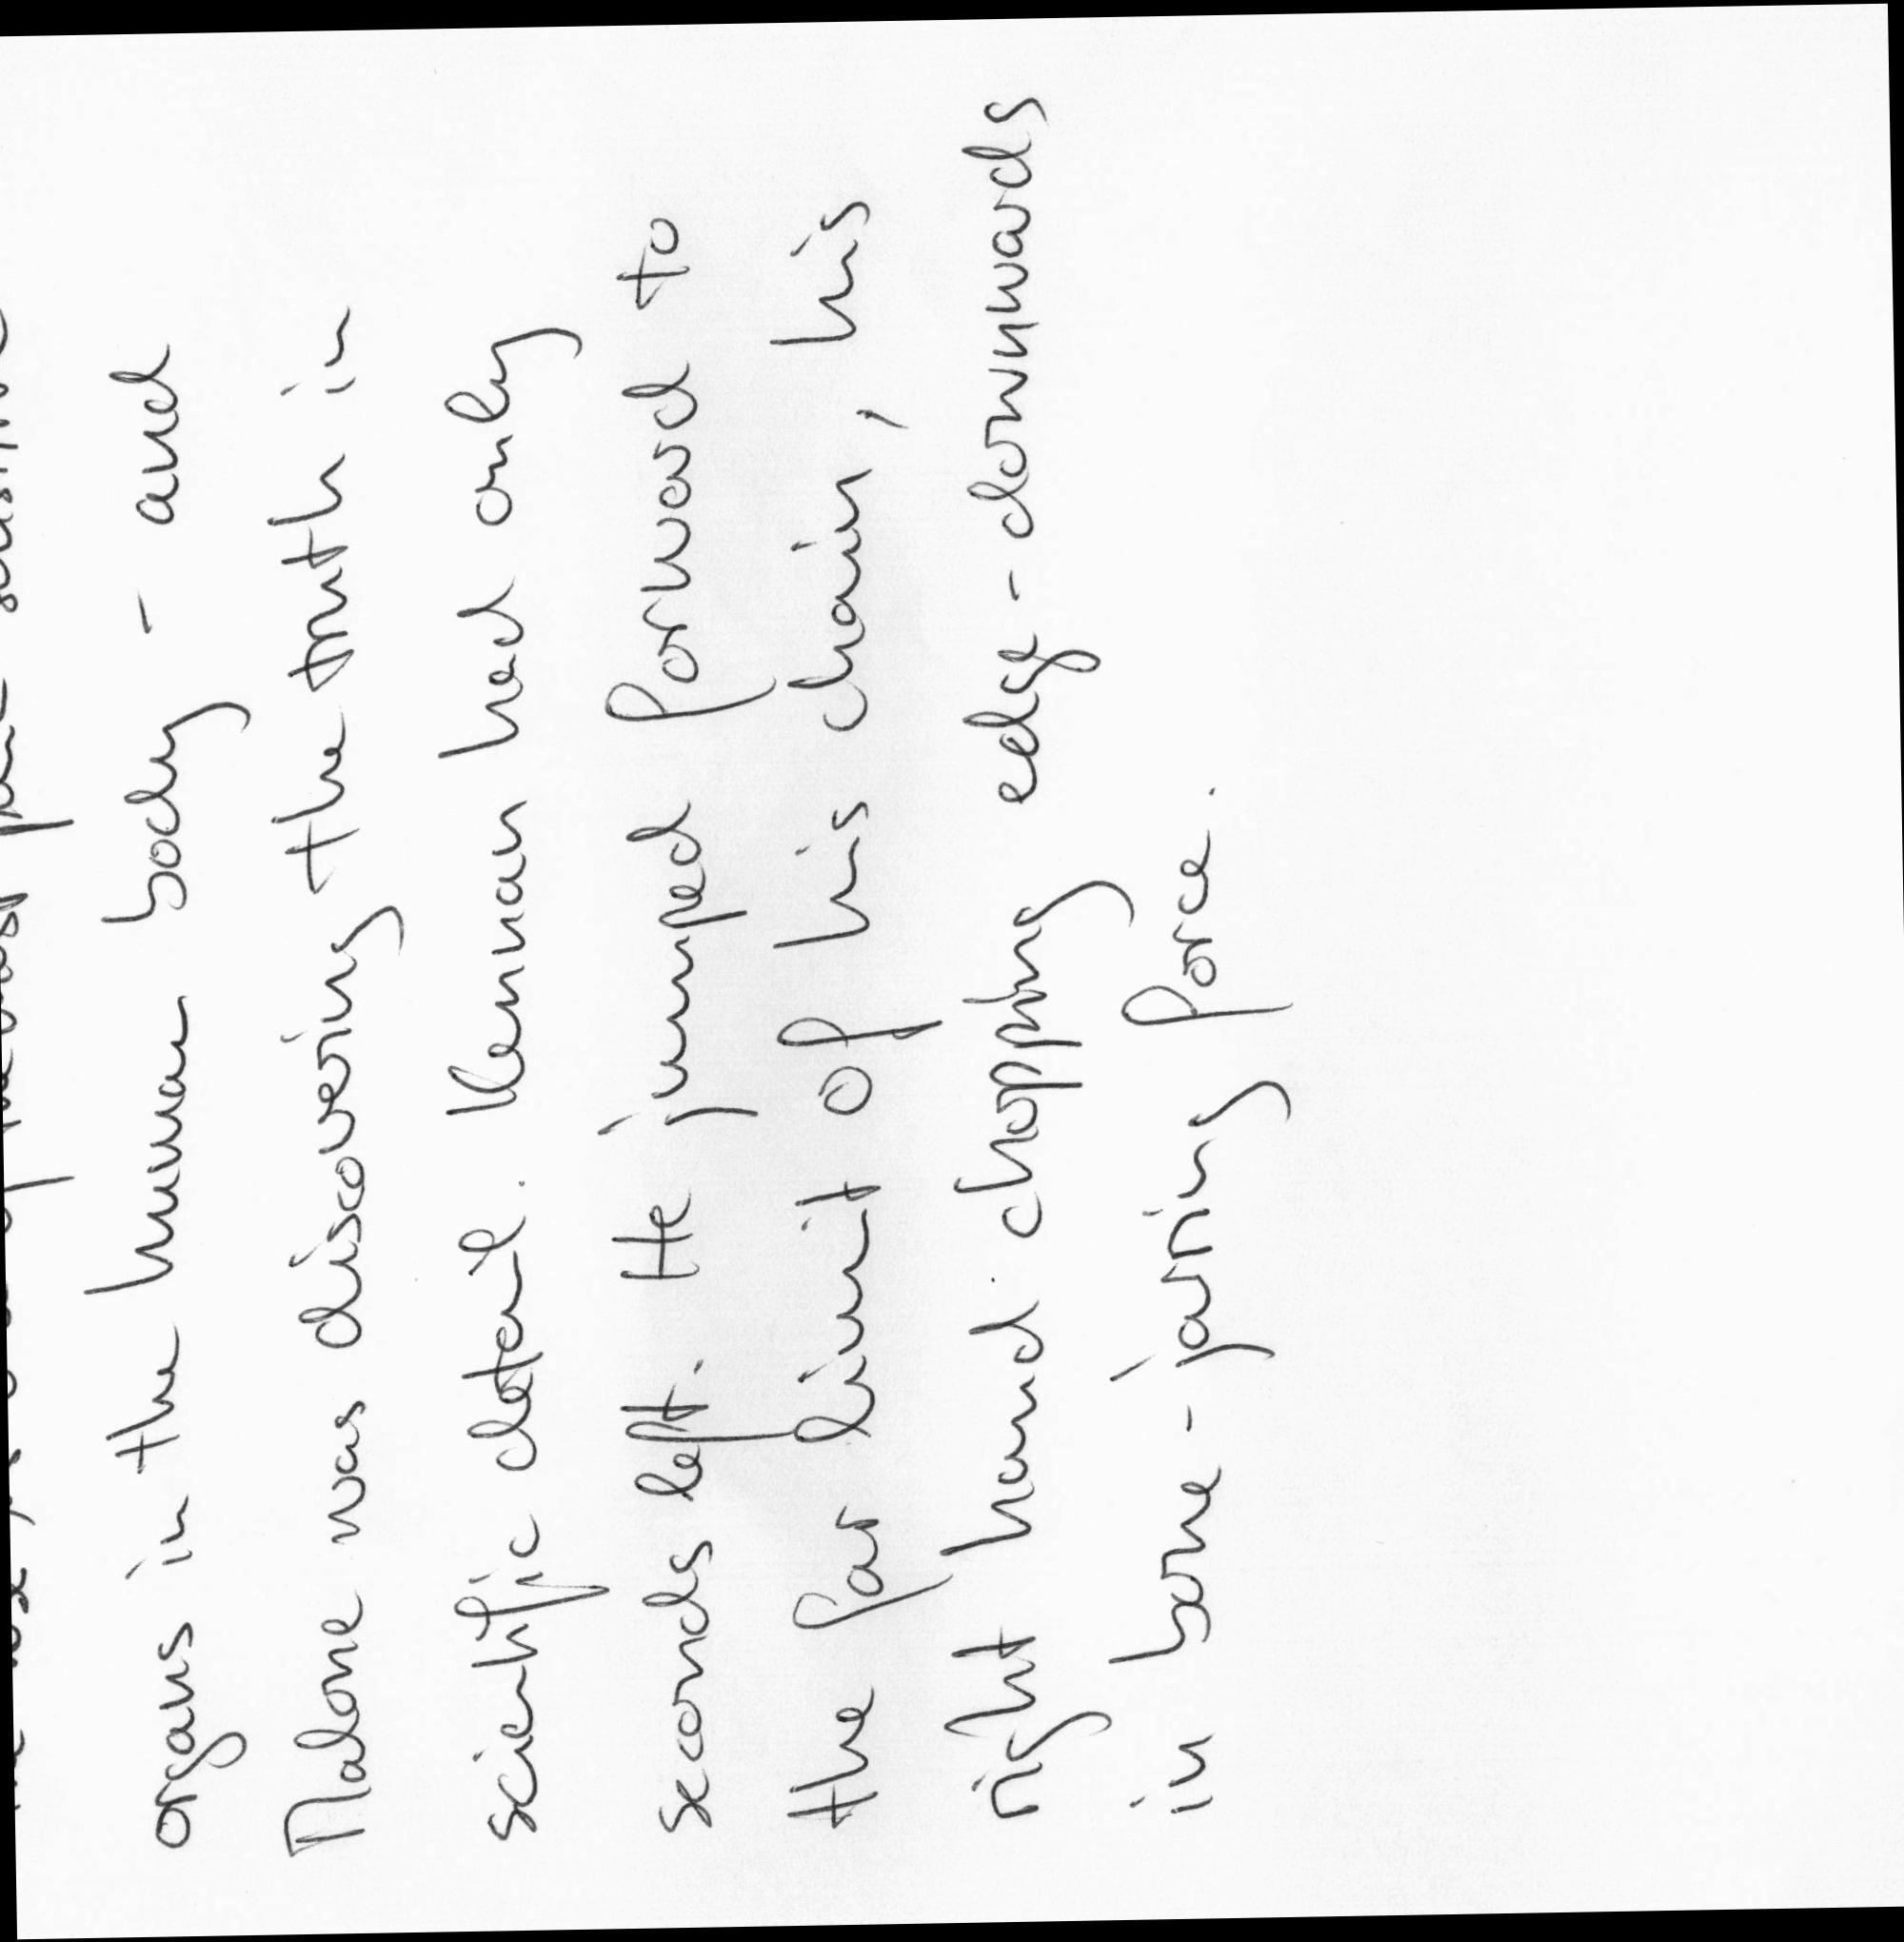 organs in the human body - and
Malone was discovering the truth in
scientific detail. Kennan had only
seconds left. He jumped forward to
the far limit of his chain, his
right hand chopping edge-downwards
in bone-jarring force.